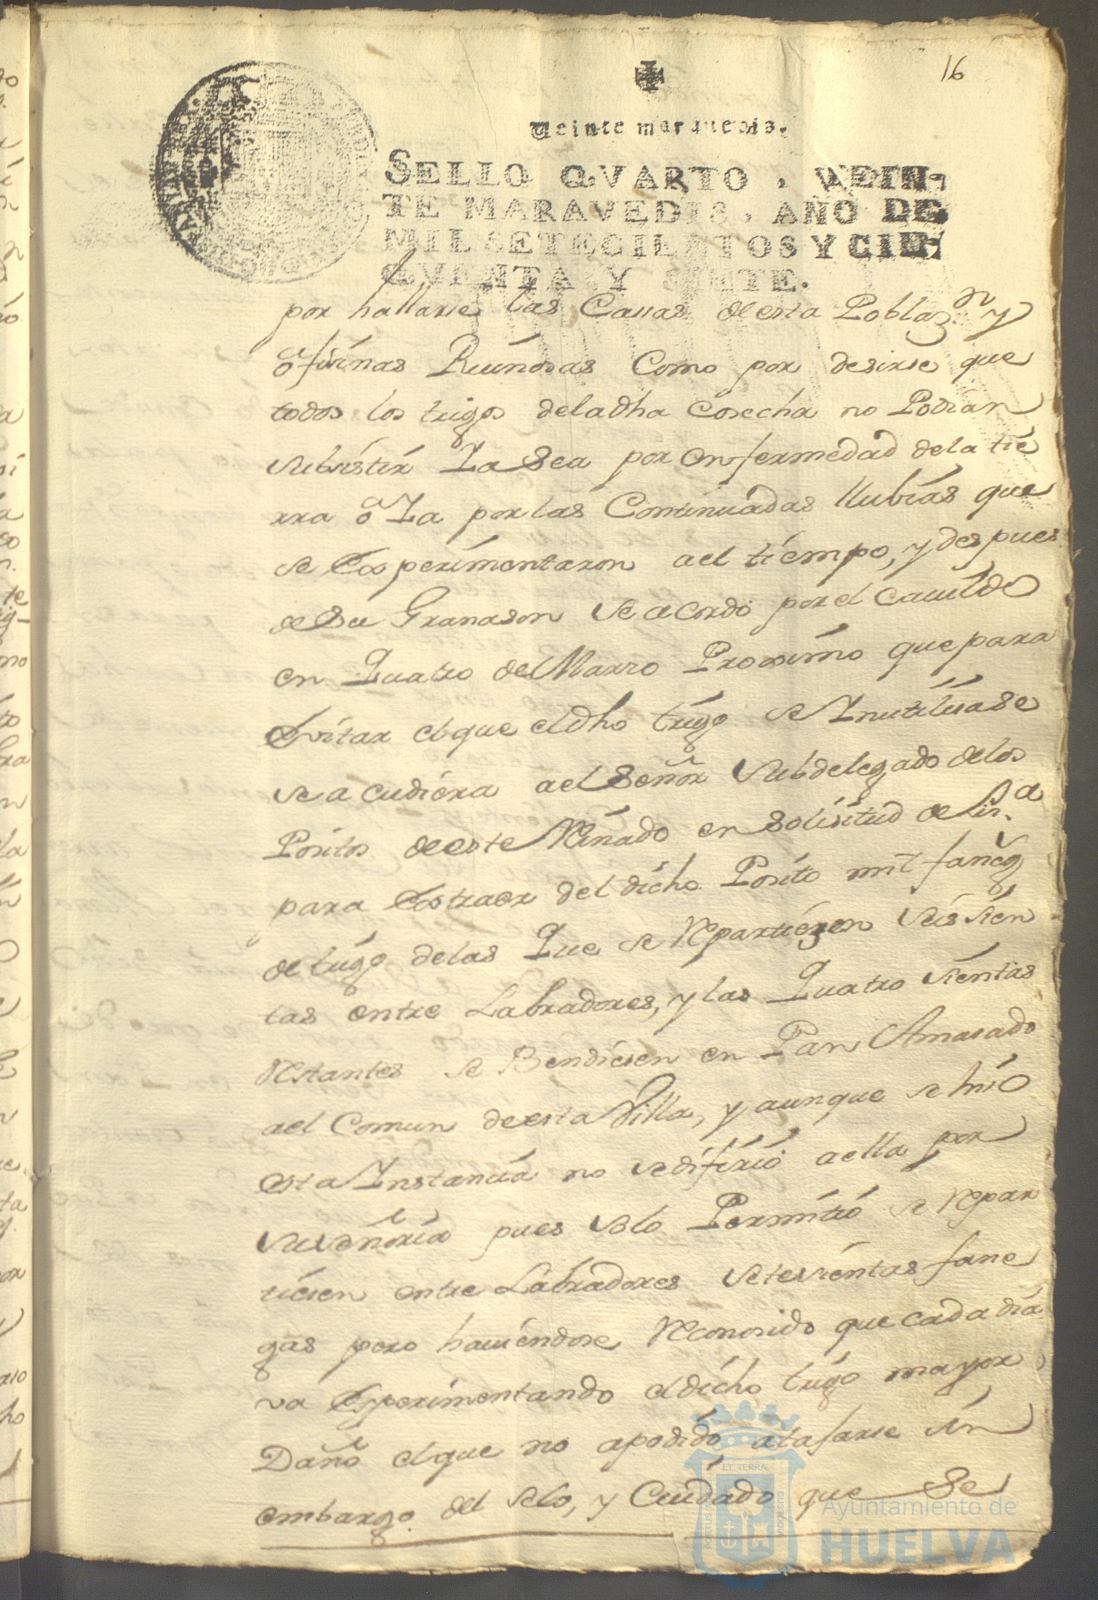 16
Veinte maravedis.
SELLO QVARTO, VEIN-
TE MARAVEDIS, AÑO DE
MIL SETECIENTOS Y CIN-
QVENTA Y SIETE.
por hallarse las Cassas de esta Poblaz.on y
ofisinas Ruinosas Como por desirse que
todos los trigos deladha Cosecha no Podian
subsistir Ya Sea por enfermedad de la tie
rra o Ya por las Continuadas llubias que
se Experimentaron ael tiempo, y despues
de Su Granason se acordó por el Cauildo
en Quatro de Marzo Proximo que para
Evitar el que el dho trigo se Inutilisase
se acudiera ael Señor Subdelegado de los
Positos de este Reinado en solisitud de Lis.a
para Extraer del dicho Posito mil faneg
de trigo de las Que se Repartiesen seissien
tas entre Labradores, y las Quatro sientas
Restantes se Bendiesen en Pan Amasado
ael Comun de esta Villa, y aunque se hiso
esta Instancia no se difirió a ella por
su señoria pues solo Permitió se Repar
tiesen entre Labradores setesientas fane
gas pero hauiendose Reconosido que cada dia
va Experimentando el dicho trigo mayor
Daño el que no apodido atajarse sin
embargo del selo, y Cuidado que Se
Ayuntamiento de
HUELVA